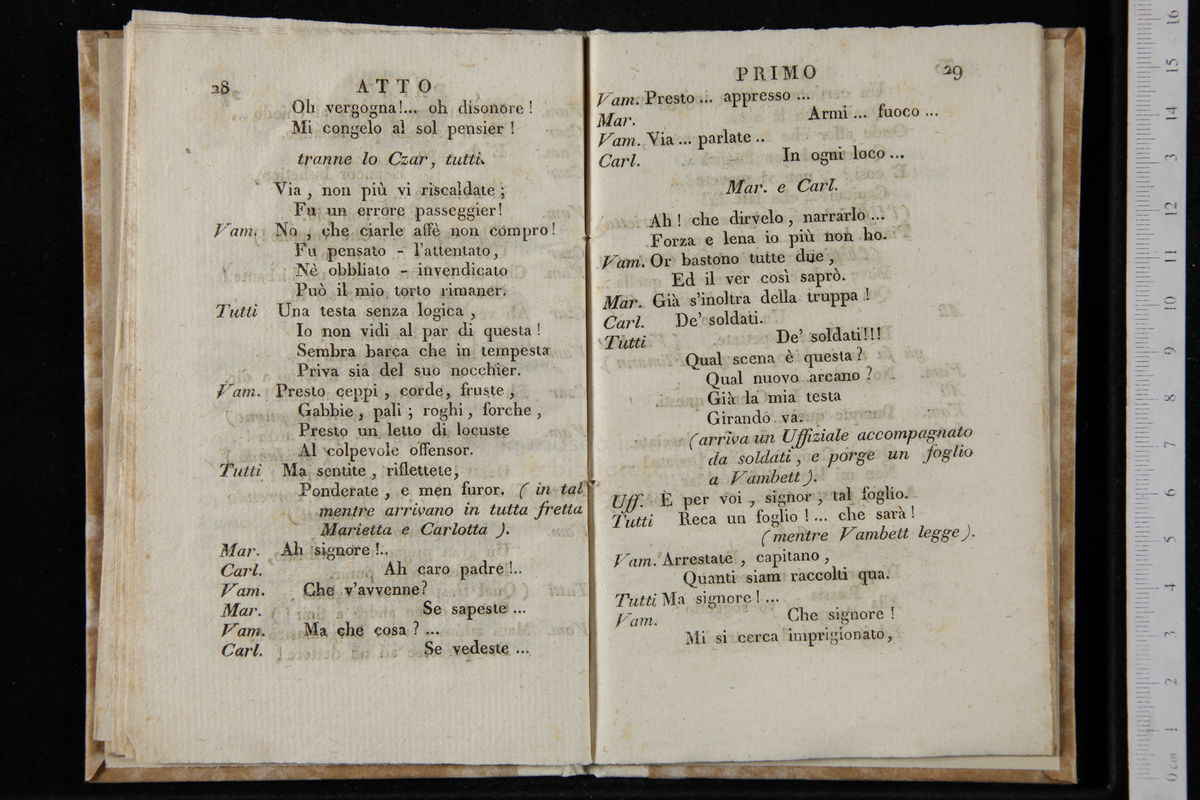 28 ATTO
Oh vergogna!... oh disonore!
Mi congelo al sol pensier!
tranne lo Czar, tutti.
Via, non più vi riscaldate;
Fu un errore passeggier!
Vam. No, che ciarle affè non compro!
Fu pensato - l'attentato,
Nè obbliato - invendicato
Può il mio torto rimaner.
Tutti Una testa senza logica,
Io non vidi al par di questa!
Sembra barca che in tempesta
Priva sia del suo nocchier.
Vam. Presto ceppi, corde, fruste,
Gabbie, pali; roghi, forche,
Presto un letto di locuste
Al colpevole offensor.
Tutti Ma sentite, riflettete,
Ponderate, e men furor. (in tal
mentre arrivano in tutta fretta
Marietta e Carlotta).
Mar. Ah signore!..
Carl. Ah caro padre!..
Vam. Che v'avvenne?
Mar. Se sapeste ...
Vam. Ma che cosa? ...
Carl. Se vedeste ...
PRIMO 29
Vam. Presto ... appresso ...
Mar. Armi ... fuoco ...
Vam. Via ... parlate ..
Carl. In ogni loco ...
Mar. e Carl.
Ah! che dirvelo, narrarlo ...
Forza e lena io più non ho.
Vam. Or bastono tutte due,
Ed il ver così saprò.
Mar. Già s'inoltra della truppa!
Carl. De' soldati.
Tutti De' soldati!!!
Qual scena è questa?
Qual nuovo arcano?
Già la mia testa
Girando va.
(arriva un Uffiziale accompagnato
da soldati, e porge un foglio
a Vambett).
Uff. E per voi, signor, tal foglio.
Tutti Reca un foglio!... che sarà!
(mentre Vambett legge).
Vam. Arrestate, capitano,
Quanti siam raccolti qua.
Tutti Ma signore! ...
Vam. Che signore!
Mi si cerca imprigionato,
0 cm 1 2 3 4 5 6 7 8 9 10 11 12 13 14 15 16